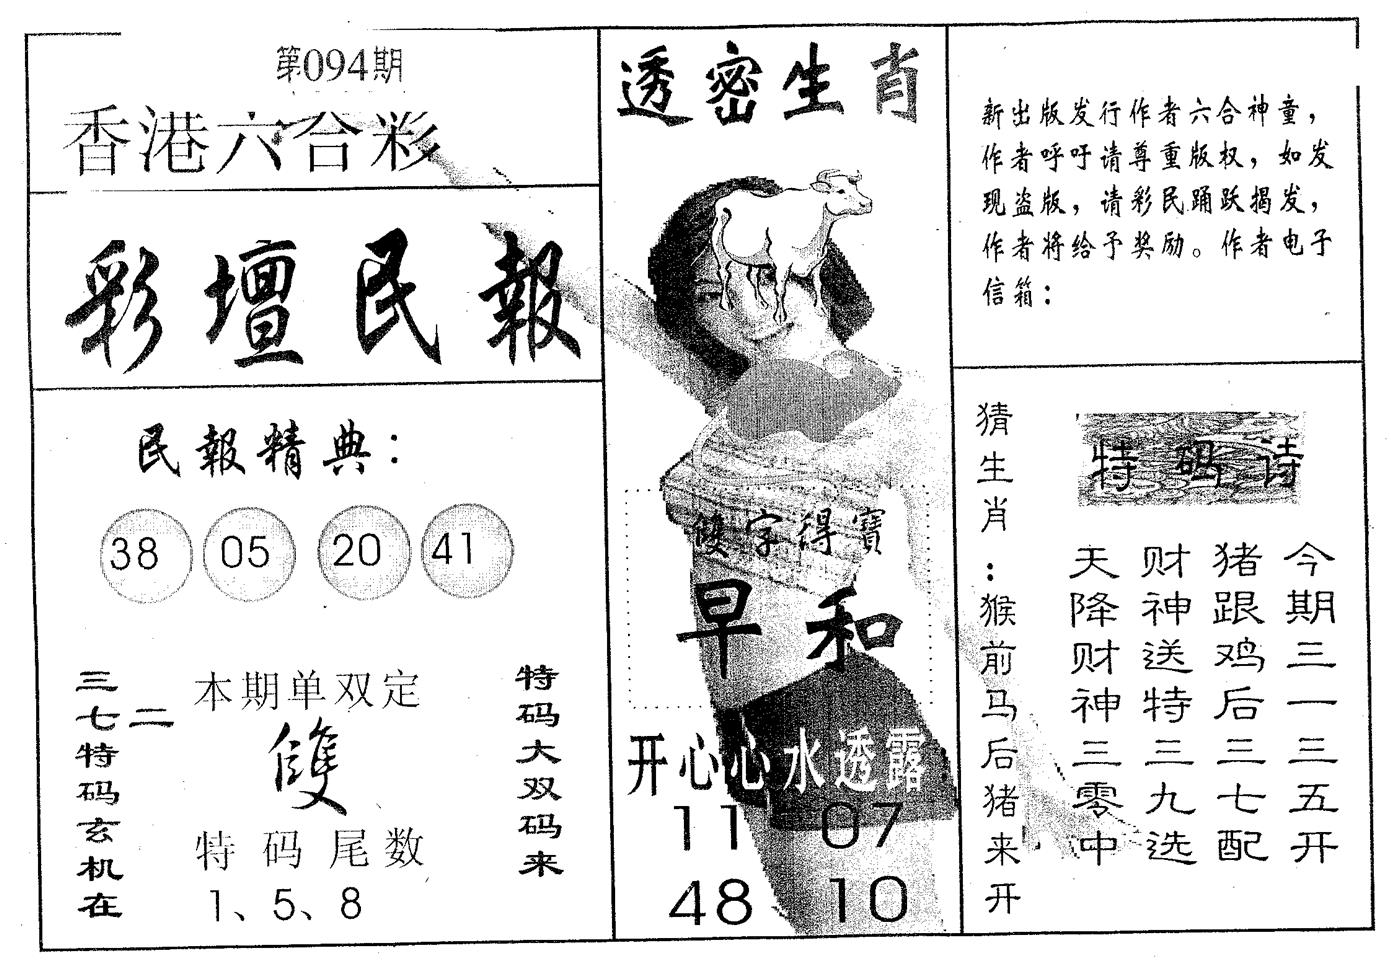 第094期
香港六合彩
彩壇民報
民報精典：
38 05 20 41
三七二特码玄机在
本期单双定
雙
特码尾数
1、5、8
特码大双码来
透密生肖
雙字得寶
早和
开心心水透露
11 07
48 10
新出版发行作者六合神童，
作者呼吁请尊重版权，如发
现盗版，请彩民踊跃揭发，
作者将给予奖励。作者电子
信箱：
特码诗
今期三一三五开
猪跟鸡后三七配
财神送特三九选
天降财神三零中
猜生肖：猴前马后猪来开